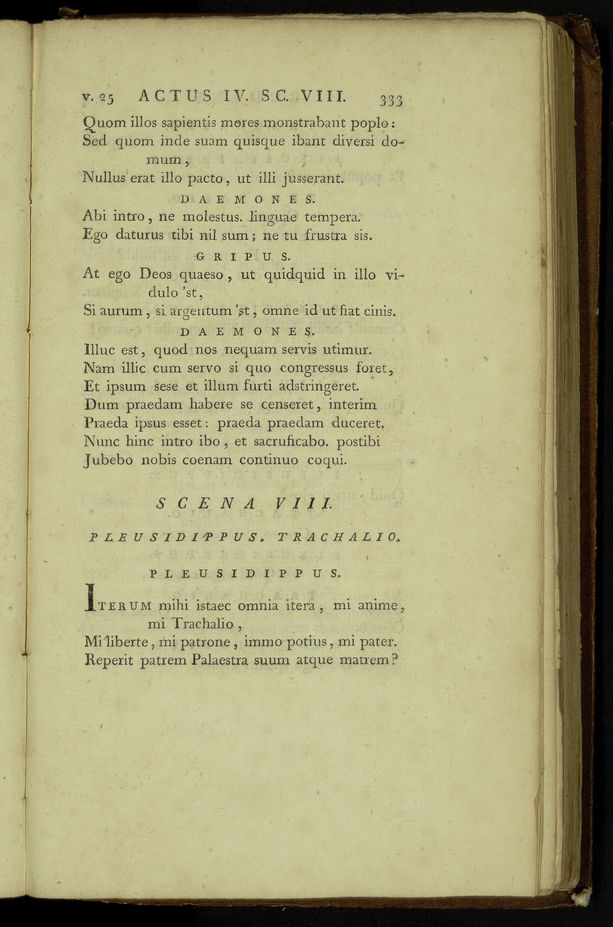 v. 25 ACTUS IV. SC. VIII. 333
Quom illos sapientis mores monstrabant poplo :
Sed quom inde suam quisque ibant diversi do-
mum ,
Nullus erat illo pacto, ut illi jusserant.
DAEMONES.
Abi intro, ne molestus. linguae tempera.
Ego daturus tibi nil sum; ne tu frustra sis.
GRIPUS.
At ego Deos quaeso, ut quidquid in illo vi-
dulo 'st,
Si aurum, si argentum 'st, omne id ut fiat cinis.
DAEMONES.
Illuc est, quod nos nequam servis utimur.
Nam illic cum servo si quo congressus foret,
Et ipsum sese et illum furti adstringeret.
Dum praedam habere se censeret, interim
Praeda ipsus esset: praeda praedam duceret.
Nunc hinc intro ibo, et sacruficabo. postibi
Jubebo nobis coenam continuo coqui.
SCENA VIII.
PLEUSIDIPPUS. TRACHALIO.
PLEUSIDIPPUS.
ITERUM mihi istaec omnia itera, mi anime,
mi Trachalio ,
Mi liberte, mi patrone, immo potius, mi pater.
Reperit patrem Palaestra suum atque matrem?